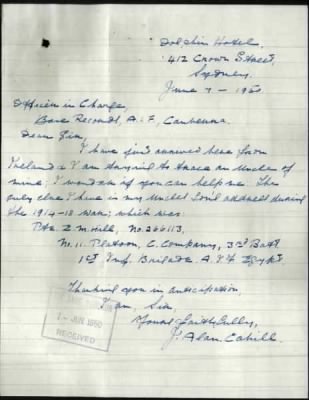 Dolphin Hotel,
412 Crown Street,
Sydney.
June 7 - 1950
Officer in Charge,
Base Records, A.I.F, Canberra.
Dear Sir,
I have just arrived here from
Ireland & I am trying to trace an Uncle of
mine, I wonder if you can help me. The
only clue I have is my Uncle's old address during
the 1914-18 war; which was:
Pte. Z. McHill, No.
No. 11. Platoon, C. Company, 3rd Batt
1st Inf. Brigade. A.I.F Egypt.
Thanking you in anticipation,
I am, Sir,
Yours faithfully,
J. Alan Cahill.
JUN 1950
RECEIVED